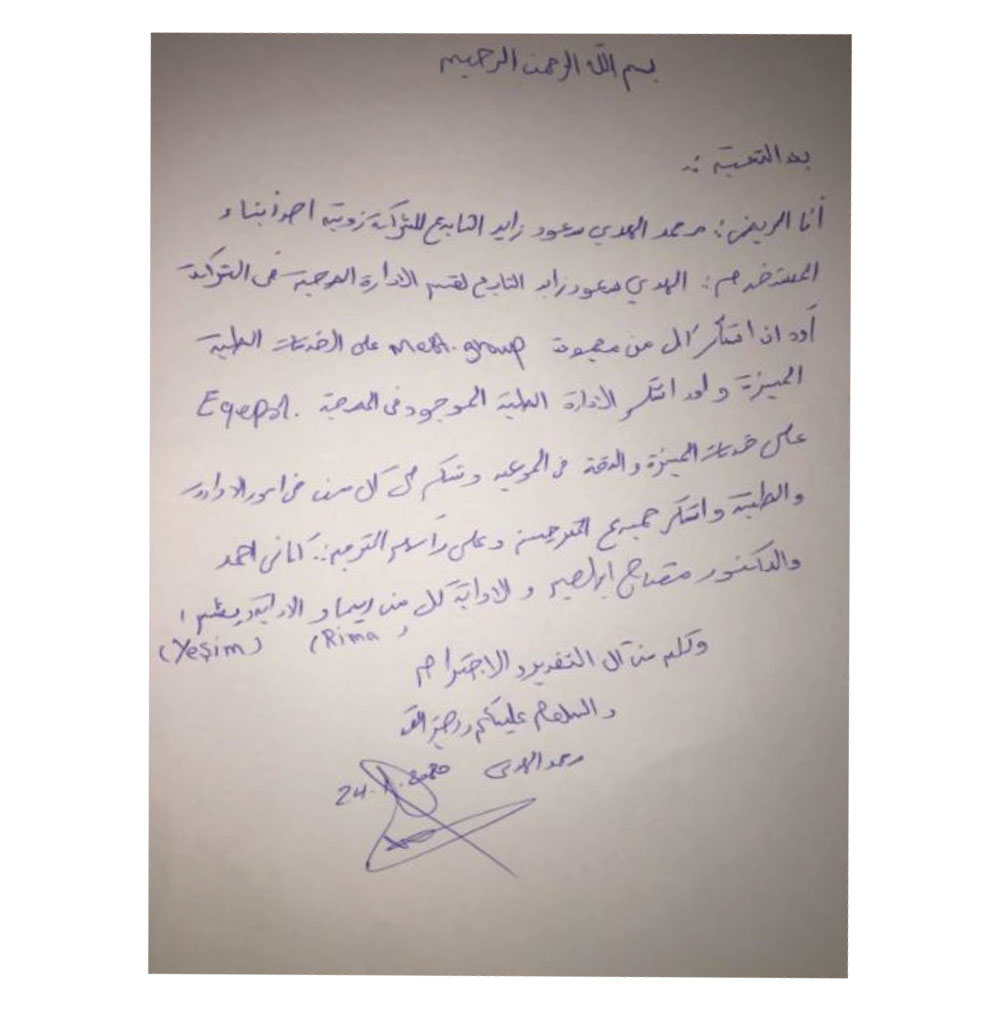 بسم الله الرحمن الرحيم
بعد التحية :-
أنا المريض : محمد الهدي مسعود زايد التابع للشركة زويتة احد أبناء
المستخدم : الهدي مسعود زايد التابع لقسم الادارة الصحية في الشركة
أود ان اشكر كل من مجموعة Medi. group على الخدمات الطبية
المميزة و اود اشكر الادارة الطبية الموجود في المصحة Egepol.
على خدمات المميزة والدقة في المواعيد و كل من في امور الادارية
والطبية واشكر جميع المترجمين وعلى رأسهم المترجم : احمد
والدكتور مصباح ابراهيم و الادارية كل من ريما و الادارية يشيم ،
(Rima) (Yeşim)
ولكم من كل التقدير و الاحترام
والسلام عليكم ورحمة الله
محمد الهدي 24.1.2020